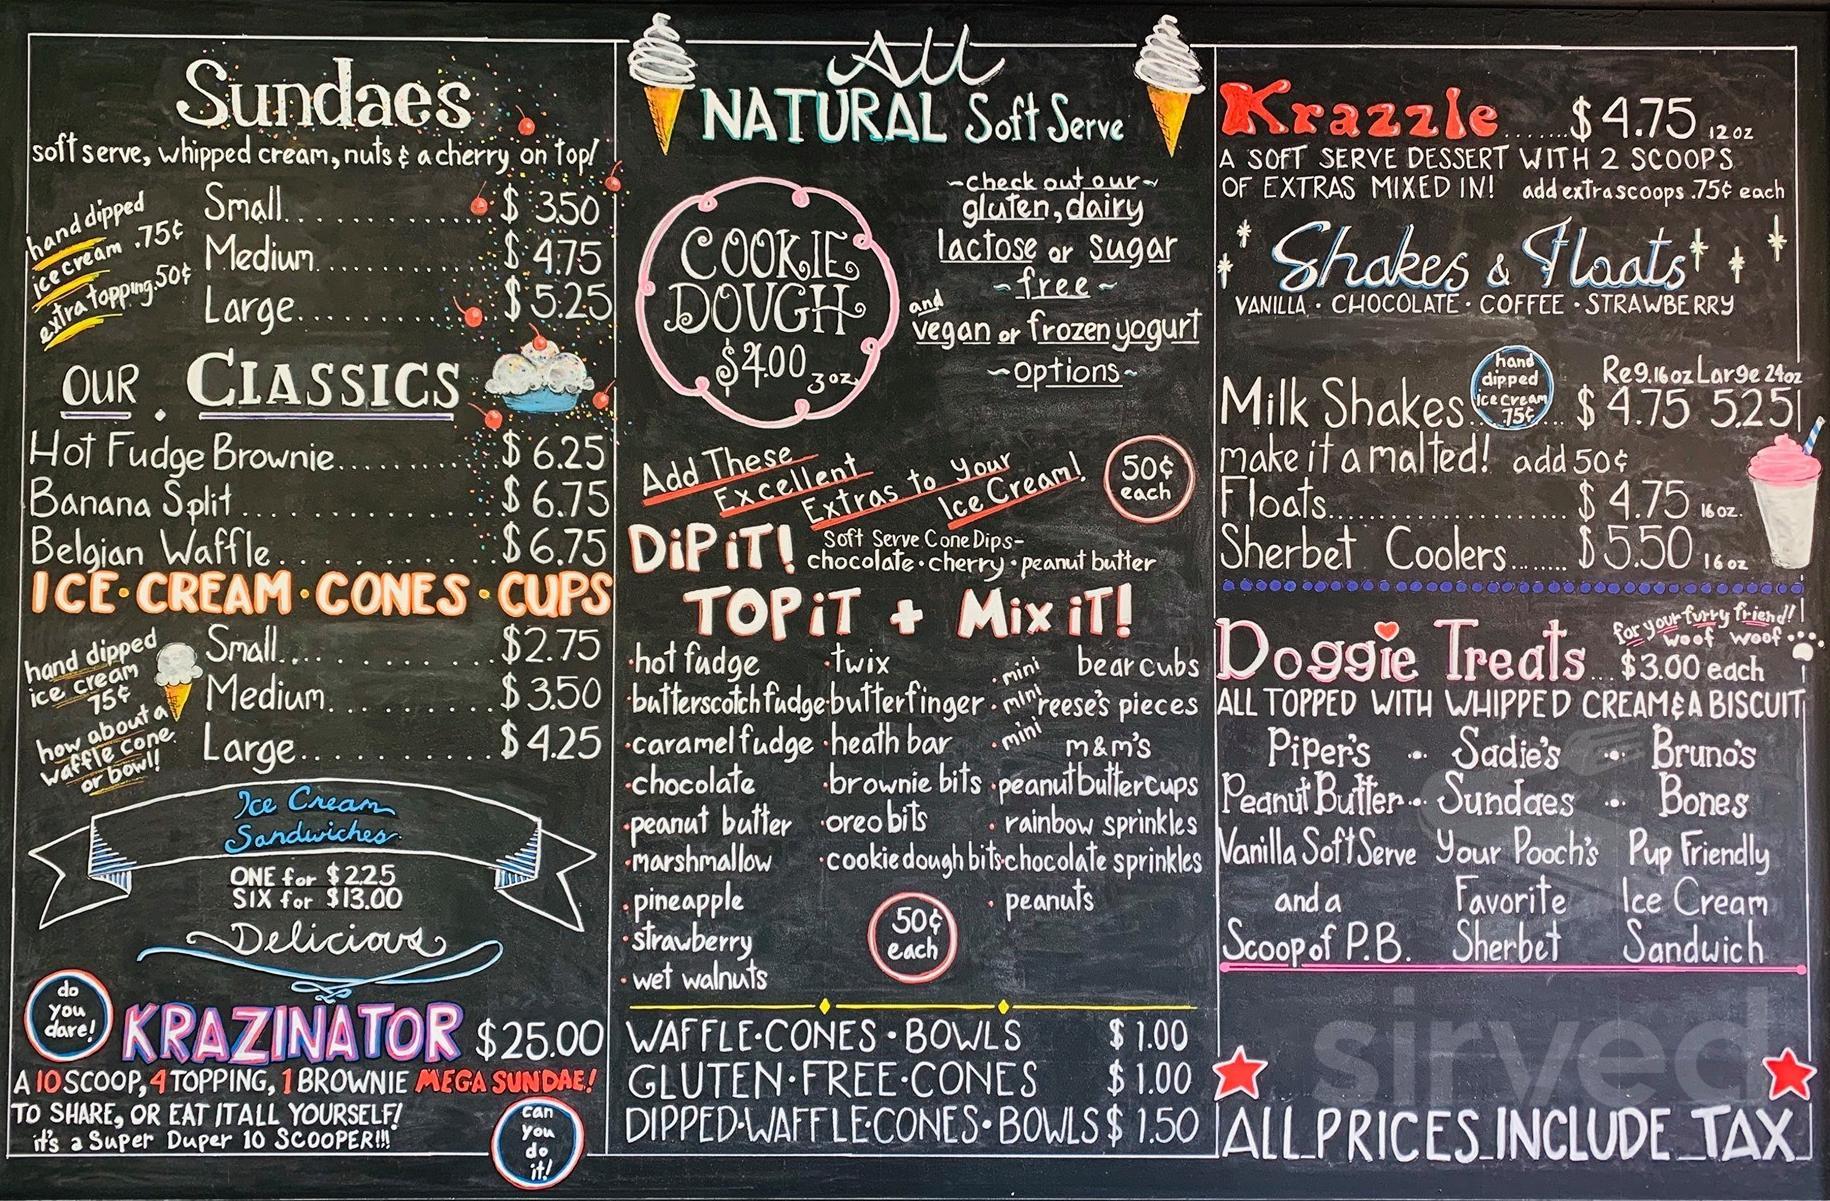 Sundaes
soft serve, whipped cream, nuts & a cherry on top!
hand dipped
ice cream .75¢
extra topping .50¢
Small.................$ 3.50
Medium.............$ 4.75
Large................$ 5.25
OUR . CLASSICS
Hot Fudge Brownie..........$ 6.25
Banana Split..................$ 6.75
Belgian Waffle...............$ 6.75
ICE·CREAM·CONES·CUPS
hand dipped
ice cream
75¢
how about a
waffle cone
or bowl!
Small.................$2.75
Medium.............$ 3.50
Large................$ 4.25
Ice Cream
Sandwiches
ONE for $2.25
SIX for $13.00
Delicious
do
you
dare!
KRAZINATOR $25.00
A 10 SCOOP, 4 TOPPING, 1 BROWNIE MEGA SUNDAE!
TO SHARE, OR EAT IT ALL YOURSELF!
it's a Super Duper 10 SCOOPER!!!
can
you
do
it!
All
NATURAL Soft Serve
COOKIE
DOUGH
$4.00 3oz
~check out our~
gluten, dairy
lactose or sugar
~free~
and
vegan or frozen yogurt
~options~
Add These
Excellent
Extras to your
Ice Cream!
50¢
each
DIP iT! Soft Serve Cone Dips-
chocolate·cherry·peanut butter
TOP iT + Mix iT!
·hot fudge
·butterscotch fudge
·caramel fudge
·chocolate
·peanut butter
·marshmallow
·pineapple
·strawberry
·wet walnuts
·twix
·butterfinger
·heath bar
·brownie bits
·oreo bits
·cookie dough bits
·mini bear cubs
·mini reese's pieces
·mini m&m's
·peanut butter cups
·rainbow sprinkles
·chocolate sprinkles
·peanuts
50¢
each
WAFFLE·CONES·BOWLS $ 1.00
GLUTEN·FREE·CONES $ 1.00
DIPPED·WAFFLE·CONES·BOWLS $ 1.50
Krazzle.......$ 4.75 12oz
A SOFT SERVE DESSERT WITH 2 SCOOPS
OF EXTRAS MIXED IN! add extra scoops .75¢ each
Shakes & Floats
VANILLA · CHOCOLATE · COFFEE · STRAWBERRY
hand
dipped
ice cream
75¢
Reg. 16oz Large 24oz
Milk Shakes......$ 4.75 5.25
make it a malted! add 50¢
Floats......................$ 4.75 16oz.
Sherbet Coolers.......$5.50 16oz
for your furry friend!
woof woof
Doggie Treats...$3.00 each
ALL TOPPED WITH WHIPPED CREAM & A BISCUIT
Piper's ·· Sadie's ·· Bruno's
Peanut Butter ·· Sundaes ·· Bones
Vanilla Soft Serve Your Pooch's Pup Friendly
and a Favorite Ice Cream
Scoop of P.B. Sherbet Sandwich
sirved
ALL PRICES INCLUDE TAX